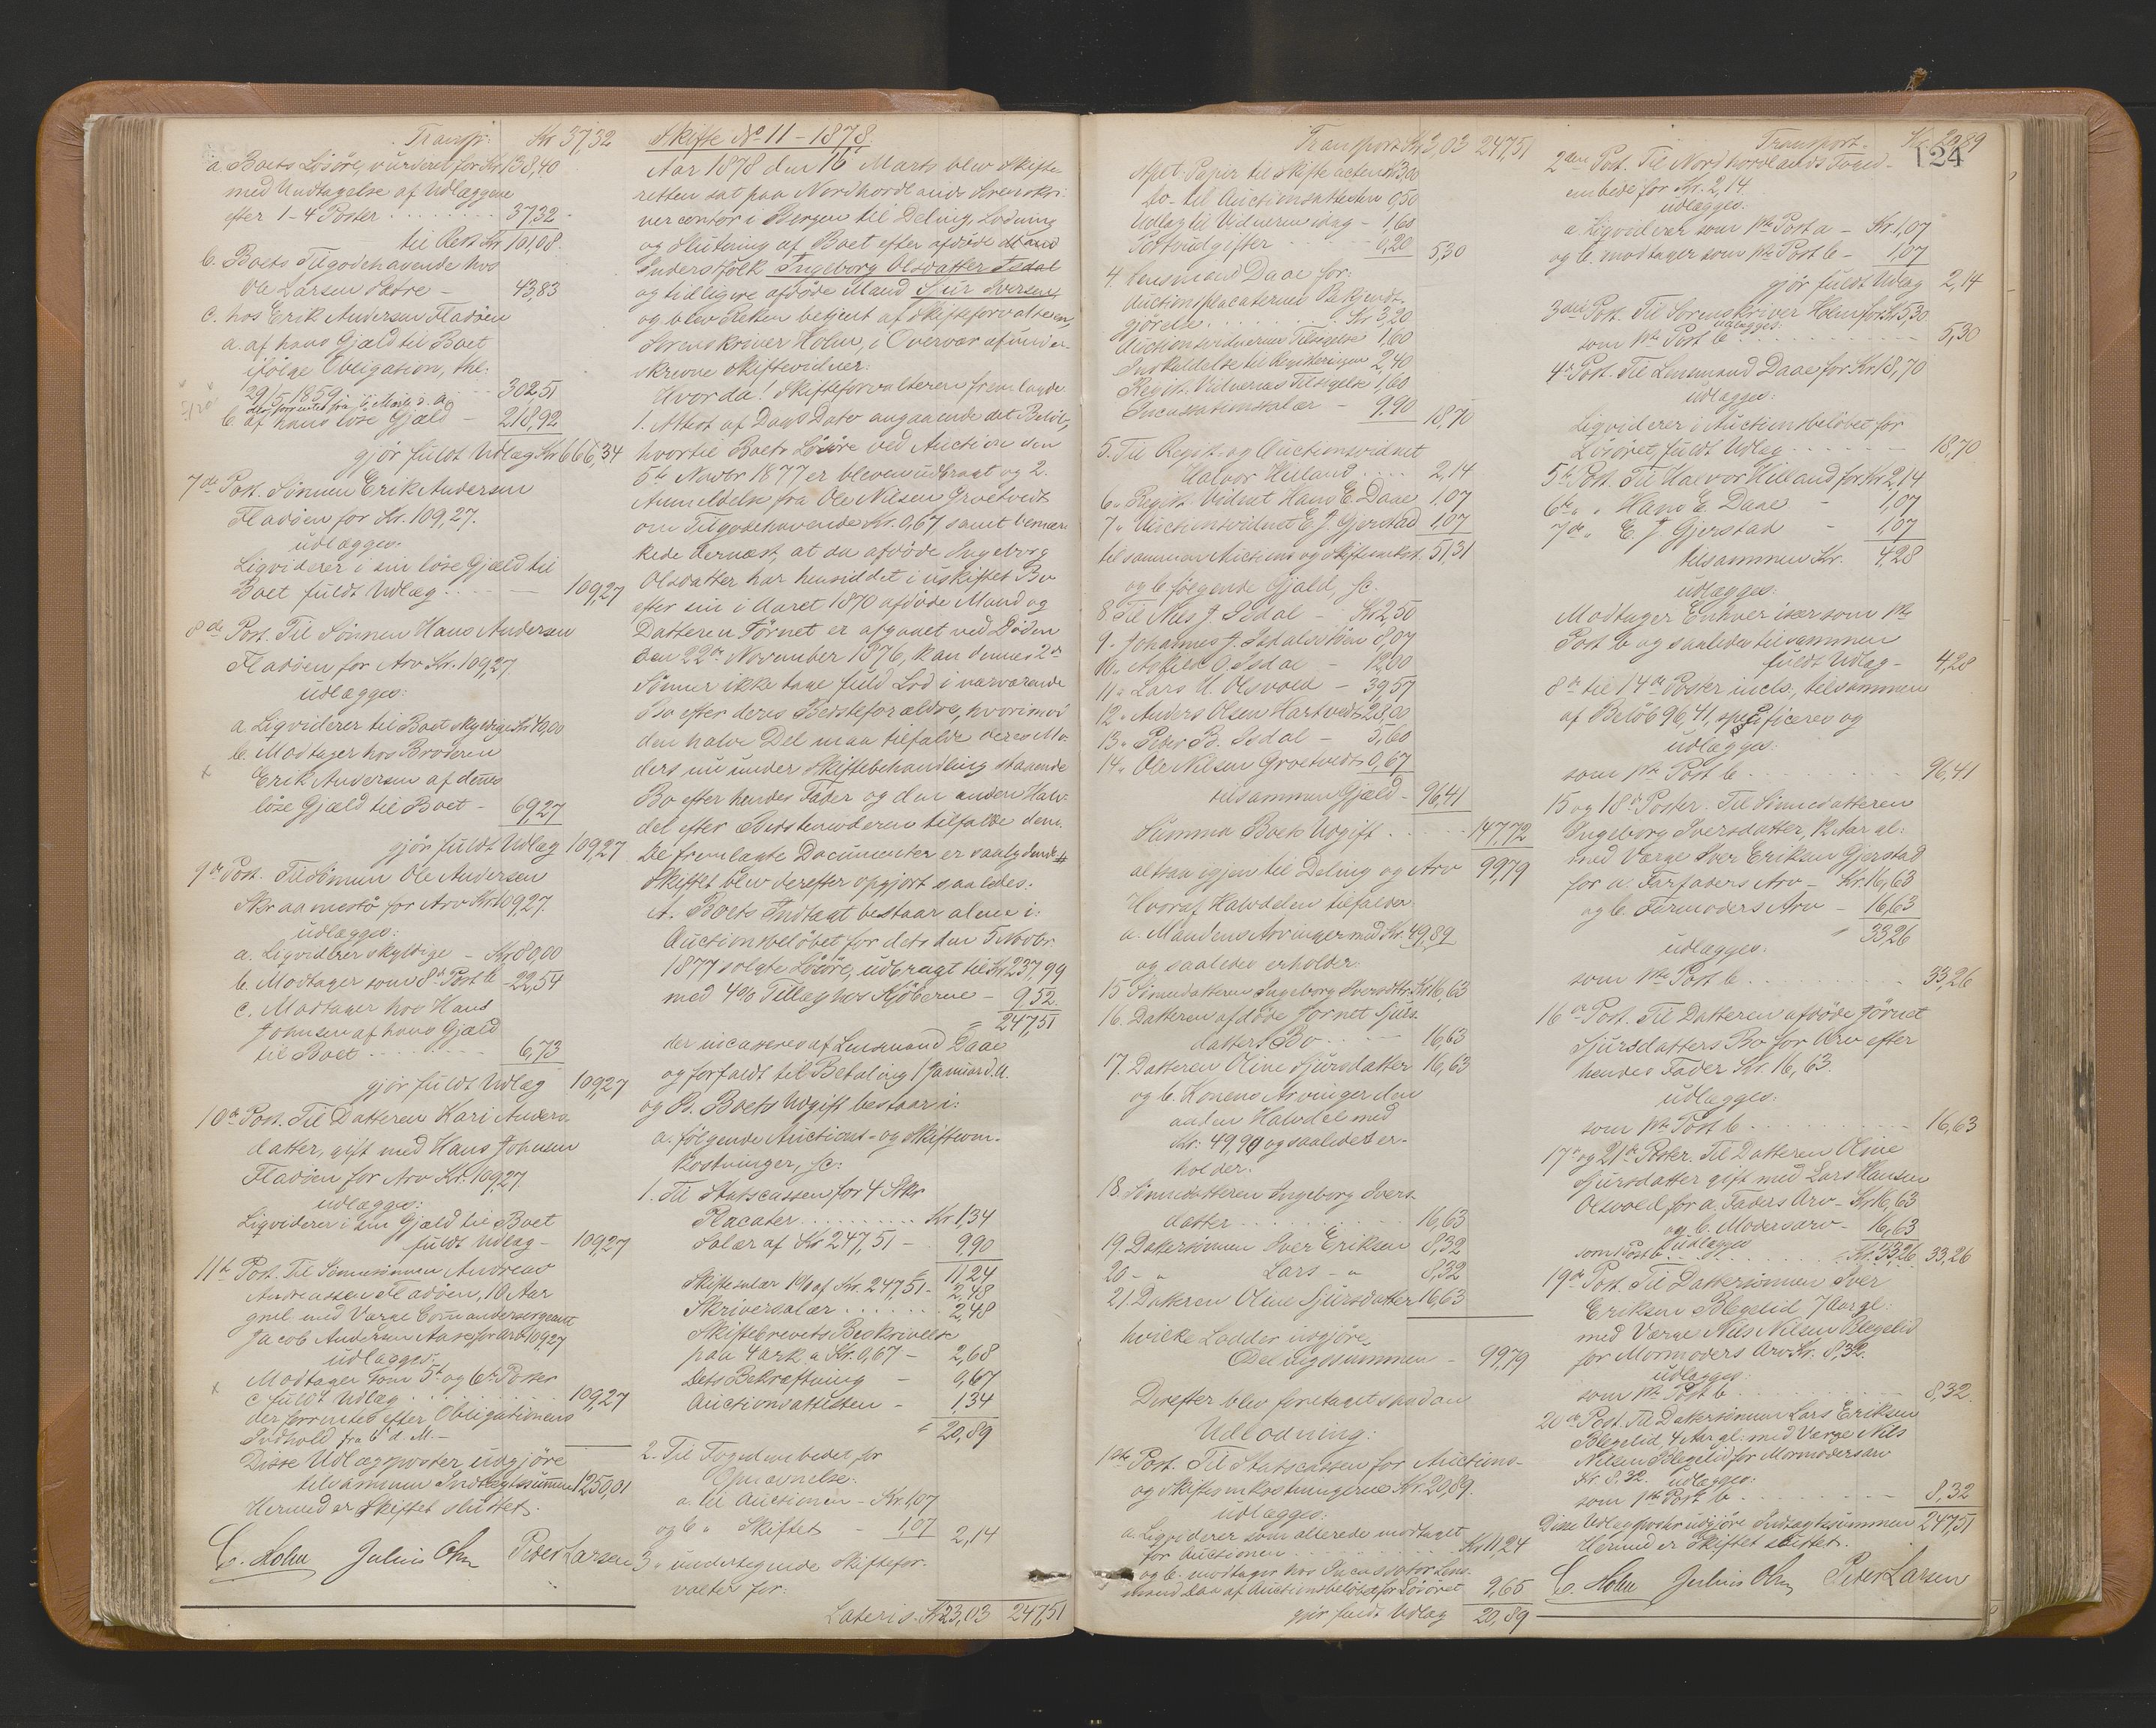 Transp: Kr 37,32
a. Boets Løsøre, vurderet for Kr 138,40
med Undtagelse af Udlæggene
efter 1-4 Poster 37,32
til Rest Kr. 101,08
b. Boets Tilgodehavende hos
Ole Larsen 43,83
c. hos Erik Andersen Fladøen
a. af hans Gjæld til Boet
ifølge Obligation, thl.
29/5 1859 302,51
b. af hans løse Gjæld - 218,92
gjør fuldt Udlæg Kr 666,34
7de Post. Sønnen Erik Andersen
Fladøen for Kr. 109,27.
udlægges:
Liqviderer i sin løse Gjæld til
Boet fuldt Udlæg 109,27
8de Post. Til Sønnen Hans Andersen
Fladøen for Arv Kr. 109,27
udlægges:
a Liqviderer til Boet skyldige Kr 40,00
b. Modtager hos Broderen
Erik Andersen af dennes
løse Gjæld til Boet - 69,27
gjør fuldt Udlæg 109,27
9de Post. Til Sønnen Ole Andersen
Skraamestø for Arv Kr 109,27.
udlægges:
a. Liqviderer skyldige - Kr 80,00
b. Modtager som 8de Post b - 22,54
c. Modtager hos Hans
Johnsen af hans Gjæld
til Boet 6,73
gjør fuldt Udlæg 109,27
10de Post. Til Datteren Kari Anders-
datter, gift med Hans Johnsen
Fladøen for Arv Kr. 109,27.
udlægges:
Liqviderer i sin Gjæld til Boet
fuldt Udlæg - 109,27
11te Post. Til Sønnesønnen Andreas
Andreassen Fladøen, 10 Aar
gml. med Værge
Jacob Andersen for Arv 109,27
udlægges:
Modtager som 5te og 6te Poster
c fuldt Udlæg 109,27
der forrentes efter Obligationens
Indhold fra 6 d. M. -
Disse Udlægsposter udgjøre
tilsammen Indtægtssummen 1250,01
Hermed er Skiftet sluttet.
C. Holm Julius Ohm Peder Larsen
Skifte No 11 - 1878.
Aar 1878 den 16 Marts blev Skifte-
retten sat paa Nordhordlands Sorenskri-
vercontor i Bergen til Deling, Lodning
og Slutning af Boet efter afdøde
Inderstfolk Ingeborg Olsdatter Isdal
og tidligere afdøde Mand Sjur Iversen,
og blev Retten betjent af Skifteforvalteren,
Sorenskriver Holm, i Overvær af under-
skrevne Skiftevidner:
Hvorda! Skifteforvalteren fremlagde
1. Attest af Dags Dato angaaende det Beløb,
hvortil Boets Løsøre ved Auction den
5te Novbr 1877 er bleven udbragt og 2.
Anmeldelse fra Ole Nilsen Groetvedt
om Tilgodehavende Kr. 0,67 samt bemær-
kede dernæst, at da afdøde Ingeborg
Olsdatter har hensiddet i uskiftet Bo
efter sin i Aaret 1870 afdøde Mand og
Datteren Jørnet er afgaaet ved Døden
den 22de November 1876, kan dennes 2de
Sønner ikke tage fuld Lod i nærværende
Bo efter deres Bedsteforældre, hvorimod
den halve Del maa tilfalde deres Mo-
ders nu under Skiftebehandling staaende
Bo efter hendes Fader og den anden Halv-
del efter Bedstemoderen tilfalde dem.
De fremlagte Documenter er saalydende
Skiftet blev derefter opgjort saaledes:
A. Boets Indtægt bestaar alene i:
Auctionsbeløbet for dets den 5 Novbr.
1877 solgte Løsøre, udbragt til Kr 237,99
med 4% Tillæg hos Kjøberne - 9,52
247,51
der incasseres af Lensmand Daae
og forfaldt til Betaling 1 Januar d.A.
og B. Boets Udgift bestaar i:
a. følgende Auctions- og Skifteom-
kostninger, sc:
1. Til Statscassen for 4 Stkr
Placater Kr. 1,34
Salær af Kr 247,51 - 9,90
11,24
Skiftesalær 1% af Kr. 247,51 - 2,48
Skriversalær 2,48
Skiftebrevets Beskrivelse
paa 4 ark a Kr. 0,67 - 2,68
Dets Bekræftning - 0,67
Auctionsattesten - 1,34
20,89
2. Til Fogedembedet for
Opnævnelse:
a. til Auctionen - Kr. 1,07
og b " Skiftet - 1,07 2,14
3. undertegnede Skiftefor-
valter for:
Lateris. Kr 23,03 247,51
Transport Kr 23,03 247,51
Spt. Papir til Skifteacten Kr 3,00
do. til Auctionsattesten 0,50
Udlæg til Vidnerne idag - 1,60
Portoudgifter 0,20 5,30
4. Lensmand Daae for:
Auctionsplacaternes Bekjendt-
gjørelse Kr 3,20
Auctionsvidnernes Tilsigelse 1,60
Indkaldelse til Registreringen 2,40
Regist. Vidnernes Tilsigelse 1,60
Incassationssalær - 9,90 18,70
5. Til Regist. og Auctionsvidnet
Halvor Hilland 2,14
6. Regist. Vidnet Hans E. Daae 1,07
7 " Auctionsvidnet E. J. Gjerstad 1,07
tilsammen Auctions og Skifteomkost. 51,31
og b. følgende Gjæld, sc.
8. Til Nils J. Isdal - Kr 2,50
9. Johannes J. Isdalstøen 8,07
10. Askild O. Isdal - 12,00
11 " Lars H. Olsvold - 39,57
12. Anders Olsen Hartvedt 28,00
13 " Peder B. Isdal - 5,60
14 " Ole Nilsen Groetvedt 0,67
tilsammen Gjæld - 96,41
Summa Boets Udgift 147,72
altsaa igjen til Deling og Arv 99,79
Hvoraf Halvdelen tilfalder
a. Mandens Arvinger med Kr. 49,89
og saaledes erholder:
15 Sønnedatteren Ingeborg Iversdtr. Kr 16,63
16. Datteren afdøde Jørnet Sjurs-
datters Bo 16,63
17. Datteren Oline Sjursdatter 16,63
og b. Konens Arvinger den
anden Halvdel med
Kr: 49,90 og saaledes er-
holder:
18. Sønnedatteren Ingeborg Ivers-
datter 16,63
19. Dattersønnen Iver Eriksen 8,32
20 - " Lars - " 8,32
21. Datteren Oline Sjursdatter 16,63
hvilke Lodder udgjøre
Delingssummen - 99,79
Derefter blev foretaget saadan
Udlodning:
1ste Post. Til Statscassen for Auctions-
og Skifteomkostningerne Kr. 20,89.
udlægges:
a. Liqviderer som allerede modtaget
for Auctionen Kr 11,24
og b. modtager hos Incassator Lens-
mand Daae af Auctionsbeløbet for Løsøret 9,65
gjør fuldt Udlæg 20,89
Transport. Kr. 20,89
124
2den Post. Til Nordhordlands Foged-
embede for Kr. 2,14.
udlægges:
a Liqviderer som 1ste Post a - Kr. 1,07
og b. modtager som 1ste Post b - 1,07
gjør fuldt Udlæg 2,14
3die Post. Til Sorenskriver Holm for Kr 5,30
udlægges:
som 1ste Post b 5,30
4de Post. Til Lensmand Daae for Kr 18,70
udlægges:
Liqviderer i Auctionsbeløbet for
Løsøret, fuldt Udlæg 18,70
5te Post. Til Halvor Hilland for Kr 2,14
6te " " Hans E. Daae - 1,07
7de " E. J. Gjerstad - 1,07
tilsammen Kr. 4,28
udlægges:
Modtager Enhver især som 1ste
Post b og saaledes tilsammen
fuldt Udlæg - 4,28
8de til 14de Poster incls., tilsammen
af Beløb 96,41, specificeres og
udlægges:
som 1ste Post b 96,41
15 og 18de Poster. Til Sønnedatteren
Ingeborg Iversdatter, 12 Aar gl:
med Værge Iver Eriksen Gjerstad
for a. Farfaders Arv - Kr. 16,63
og b. Farmoders Arv - 16,63
" 33,26
udlægges:
som 1ste Post b 33,26
16de Post. Til Datteren afdøde Jørnet
Sjursdatters Bo for Arv efter
hendes Fader Kr. 16,63.
udlægges:
som 1ste Post b 16,63
17de og 21de Poster. Til Datteren Oline
Sjursdatter gift med Lars Hansen
Olsvold for a. Faders Arv - Kr 16,63
og b. Modersarv - 16,63
udlægges
som Post b Kr. 33,26 33,26
19de Post. Til Dattersønnen Iver
Eriksen Blegelid, 7 Aar gl:
med Værge Nils Nilsen Blegelid
for Mormoders Arv Kr. 8,32.
udlægges:
som 1ste Post b 8,32
20de Post. Til Dattersønnen Lars Eriksen
Blegelid, 4 Aar gl: med Værge Nils
Nilsen Blegelid for Mormodersarv
Kr. 8,32. udlægges:
som 1ste Post b 8,32
Disse Udlægsposter udgjøre Indtægtssummen 247,51
Hermed er Skiftet sluttet.
C. Holm Julius Ohm Peter Larsen